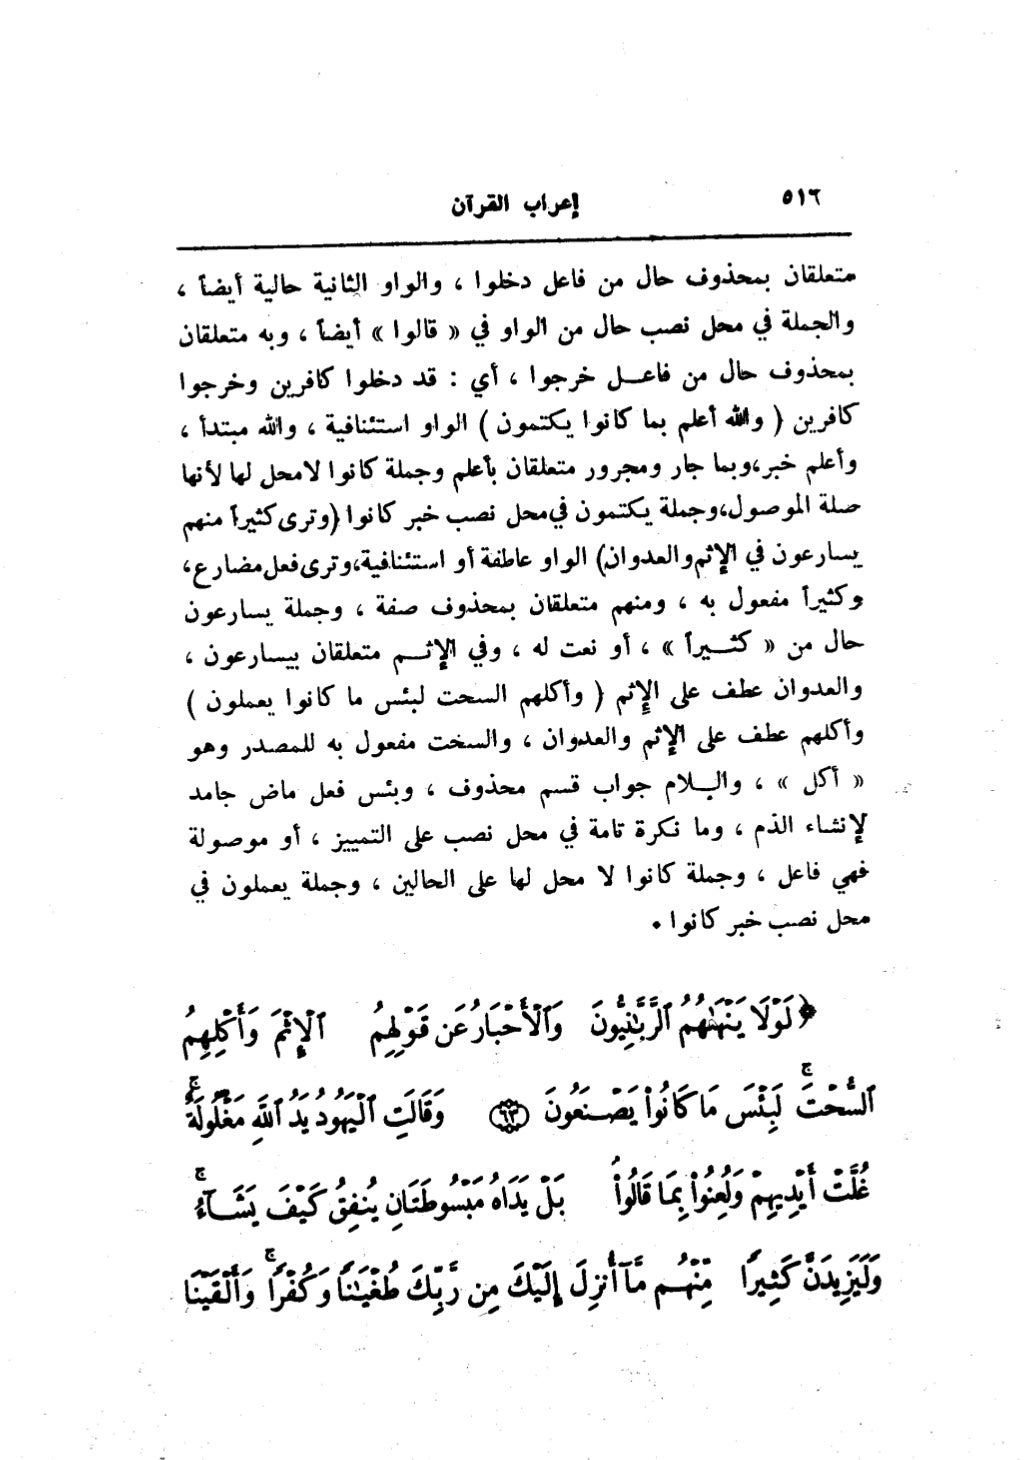 ٥١٦
إعراب القرآن
متعلقان بمحذوف حال من فاعل دخلوا ، والواو الثانية حالية أيضاً ،
والجملة في محل نصب حال من الواو في « قالوا » أيضاً ، وبه متعلقان
بمحذوف حال من فاعـل خرجوا ، أي : قد دخلوا كافرين وخرجوا
كافرين ( والله أعلم بما كانوا يكتمون ) الواو استئنافية ، والله مبتدأ ،
وأعلم خبر،وبما جار ومجرور متعلقان بأعلم وجملة كانوا لامحل لها لأنها
صلة الموصول،وجملة يكتمون في محل نصب خبر كانوا (وترى كثيراً منهم
يسارعون في الإثم والعدوان) الواو عاطفة أو استئنافية،وترى فعل مضارع،
وكثيراً مفعول به ، ومنهم متعلقان بمحذوف صفة ، وجملة يسارعون
حال من « كثـيراً » ، أو نعت له ، وفي الإثـم متعلقان بيسارعون ،
والعدوان عطف على الإثم ( وأكلهم السحت لبئس ما كانوا يعملون )
وأكلهم عطف على الإثم والعدوان ، والسخت مفعول به للمصدر وهو
« أكل » ، والـلام جواب قسم محذوف ، وبئس فعل ماض جامد
لإنشاء الذم ، وما نكرة تامة في محل نصب على التمييز ، أو موصولة
فهي فاعل ، وجملة كانوا لا محل لها على الحالين ، وجملة يعملون في
محل نصب خبر كانوا .
﴿ لَوْلَا يَنْهَىٰهُمُ ٱلرَّبَّٰنِيُّونَ وَٱلْأَحْبَارُ عَن قَوْلِهِمُ ٱلْإِثْمَ وَأَكْلِهِمُ
ٱلسُّحْتَ ۚ لَبِئْسَ مَا كَانُوا۟ يَصْنَعُونَ ٦٣ وَقَالَتِ ٱلْيَهُودُ يَدُ ٱللَّهِ مَغْلُولَةٌ ۚ
غُلَّتْ أَيْدِيهِمْ وَلُعِنُوا۟ بِمَا قَالُوا۟ ۘ بَلْ يَدَاهُ مَبْسُوطَتَانِ يُنفِقُ كَيْفَ يَشَآءُ ۚ
وَلَيَزِيدَنَّ كَثِيرًا مِّنْهُم مَّآ أُنزِلَ إِلَيْكَ مِن رَّبِّكَ طُغْيَٰنًا وَكُفْرًا ۚ وَأَلْقَيْنَا